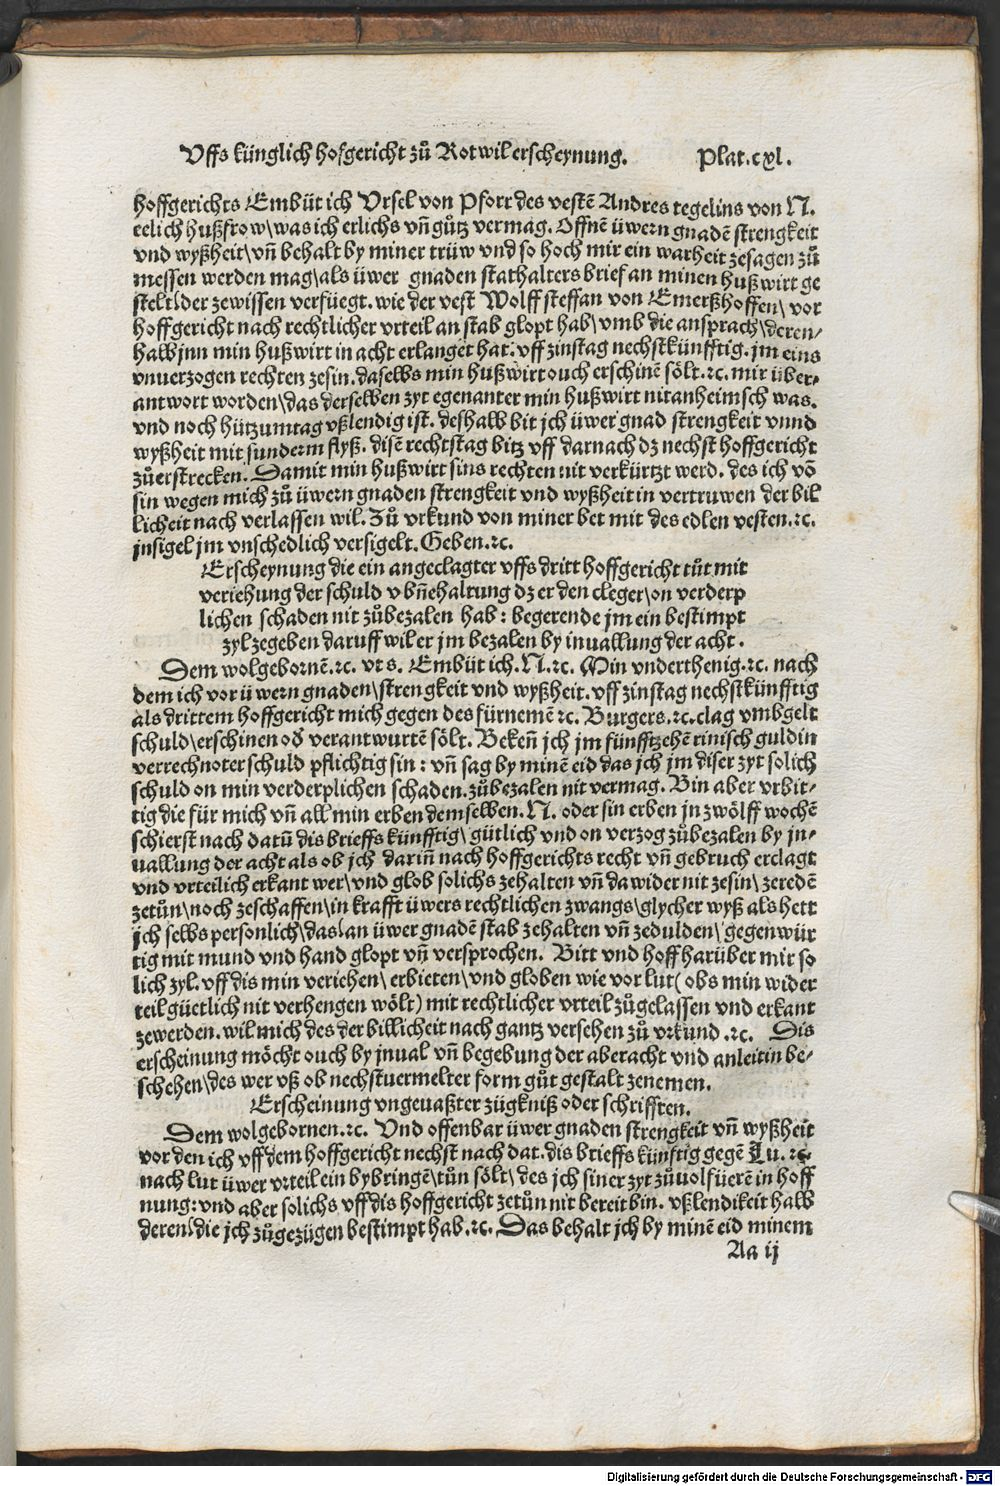 Uffs künglich hofgericht zů Rotwil erscheynung. Plat. cxl.
hoffgerichts Embüt ich Ursel von Pforr des vestē Andres tegelins von N.
eelich hußfrow\ was ich erlichs vñ gůtz vermag. Offnē üwern gnadē strengkeit
vnd wyßheit\ vñ behalt by miner trüw vnd so hoch mir ein warheit zesagen zů
messen werden mag\ als üwer gnaden stathalters brief an minen hußwirt ge
stelt\ der zewissen verfüegt. wie der vest Wolff steffan von Emerßhoffen\ vor
hoffgericht nach rechtlicher vrteil an stab glopt hab\ vmb die ansprach\ deren-
halb jnn min hußwirt in acht erlanget hat. vff zinstag nechstkünfftig. jm eins
vnuerzogen rechten zesin. daselbs min hußwirt ouch erschinē sölt. ⁊c. mir über-
antwort worden\ das derselben zyt egenanter min hußwirt nit anheimsch was.
vnd noch hützumtag vßlendig ist. deshalb bit jch üwer gnad strengkeit vnnd
wyßheit mit sunderm flyß. disē rechtstag bitz vff darnach dz nechst hoffgericht
zůerstrecken. Damit min hußwirt sins rechten nit verkürtzt werd. des ich vō
sin wegen mich zů üwern gnaden strengkeit vnd wyßheit in vertruwen der bil
licheit nach verlassen wil. Zů vrkund von miner bet mit des edlen vesten. ⁊c.
jnsigel jm vnschedlich versigelt. Geben. ⁊c.
Erscheynung die ein angeclagter vffs dritt hoffgericht tůt mit
veriehung der schuld v bñehaltung dz er den cleger\ on verderp
lichen schaden nit zůbezalen hab : begerende jm ein bestimpt
zyl zegeben daruff wil er jm bezalen by inuallung der acht.
Dem wolgebornē. ⁊c. vt s. Embüt ich. N. ⁊c. Min vnderthenig. ⁊c. nach
dem ich vor üwern gnaden\ strengkeit vnd wyßheit. vff zinstag nechstkünfftig
als drittem hoffgericht mich gegen des fürnemē ⁊c. Burgers. ⁊c. clag vmb gelt
schuld\ erschinen oď verantwurtē sölt. Bekeñ jch jm fünfftzehē rinisch guldin
verrechnoter schuld pflichtig sin : vñ sag by minē eid das jch jm diser zyt solich
schuld on min verderplichen schaden. zůbezalen nit vermag. Bin aber vrbit-
tig die für mich vñ all min erben demselben. N. oder sin erben jn zwölff wochē
schierst nach datū dis brieffs künfftig\ gütlich vnd on verzog zůbezalen by jn-
uallung der acht als ob jch dariñ nach hoffgerichts recht vñ gebruch erclagt
vnd vrteilich erkant wer\ vnd glob solichs zehalten vñ da wider nit zesin\ zeredē
zetůn\ noch zeschaffen\ in krafft üwers rechtlichen zwangs\ glycher wyß als hett
jch selbs personlich\ das\ an üwer gnadē stab zehalten vñ zedulden\ gegenwür
tig mit mund vnd hand glopt vñ versprochen. Bitt vnd hoff harüber mir so
lich zyl. vff dis min veriehen\ erbieten\ vnd globen wie vor lut ( obs min wider
teil güetlich nit verhengen wölt) mit rechtlicher vrteil zůgelassen vnd erkant
zewerden. wil mich des der billicheit nach gantz versehen zů vrkund. ⁊c. Dis
erscheinung möcht ouch by jnual vñ begebung der aberacht vnd anleitin be-
schehen\ des wer vß ob nechstuermelter form gůt gestalt zenemen.
Erscheinung vngeuaßter zügkniß oder schrifften.
Dem wolgebornen. ⁊c. Vnd offenbar üwer gnaden strengkeit vñ wyßheit
vor den ich vff dem hoffgericht nechst nach dat. dis brieffs künftig gegē Lu. ⁊c.
nach lut üwer vrteil ein bybringē\ tůn sölt\ des jch siner zyt zůuolfüerē in hoff
nung: vnd aber solichs vff dis hoffgericht zetůn nit bereit bin. vßlendikeit halb
deren\ die jch zůgezügen bestimpt hab. ⁊c. Das behalt jch by minē eid minem
Aa ij
Digitalisierung gefördert durch die Deutsche Forschungsgemeinschaft - DFG